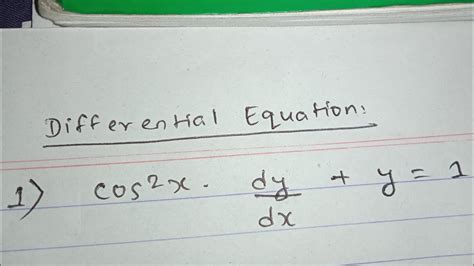 Differential Equation:
1) cos²x · dy/dx + y = 1